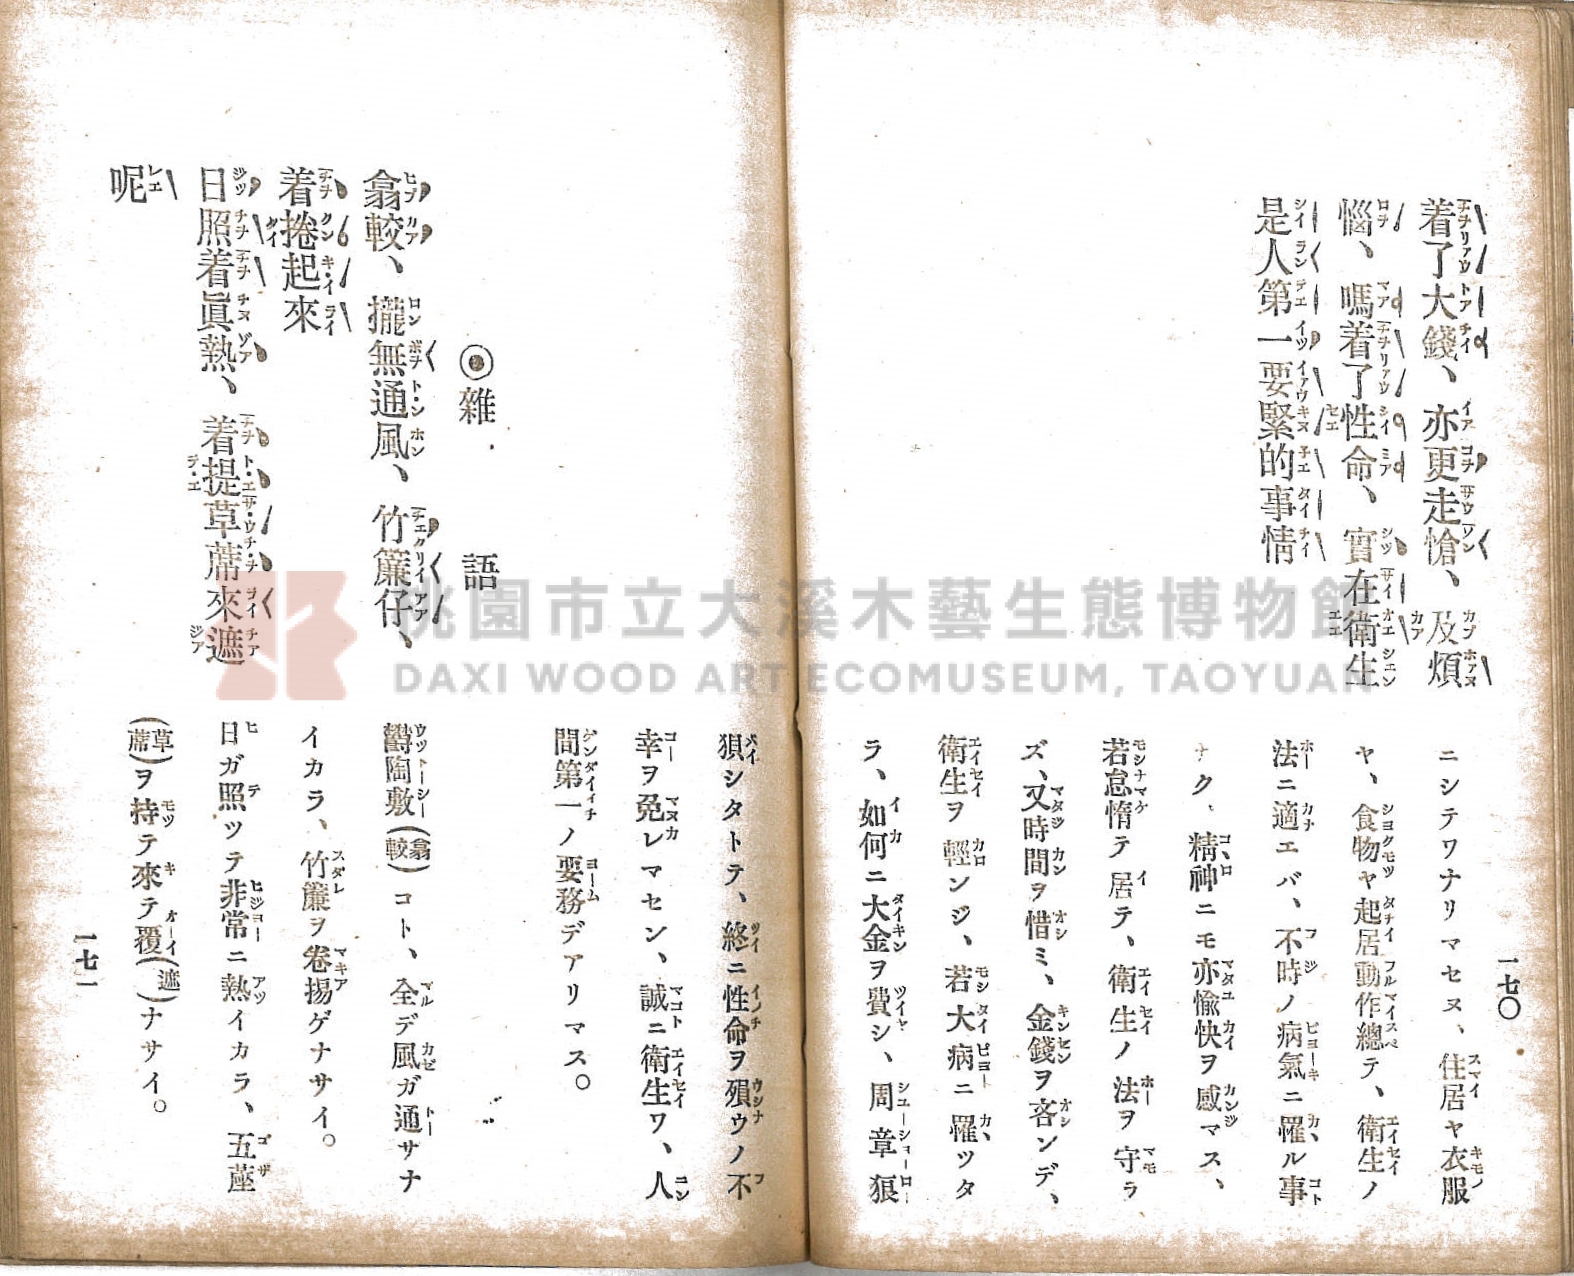 着了大錢、亦更走愴、及煩
惱、嗎着了性命、實在衛生
是人第一要緊的事情
ニシテワナリマセヌ、住居ヤ衣服
ヤ、食物ヤ起居動作總テ、衛生ノ
法ニ適エバ、不時ノ病氣ニ罹ル事
ナク、精神ニモ亦愉快ヲ感マス、
若怠惰テ居テ、衛生ノ法ヲ守ラ
ズ、又時間ヲ惜ミ、金錢ヲ吝ンデ、
衛生ヲ輕ンジ、若大病ニ罹ツタ
ラ、如何ニ大金ヲ費シ、周章狼
一七〇
狽シタトテ、終ニ性命ヲ殞ウノ不
幸ヲ免レマセン、誠ニ衛生ワ、人
間第一ノ要務デアリマス。
◉雜語
翕較、攏無通風、竹簾仔、
着捲起來
日照着眞熱、着提草蓆來遮
呢
鬱陶敷(翕較)コト、全デ風ガ通サナ
イカラ、竹簾ヲ卷揚ゲナサイ。
日ガ照ツテ非常ニ熱イカラ、五蓙
(草蓆)ヲ持テ來テ覆(遮)ナサイ。
一七一
桃園市立大溪木藝生態博物館
DAXI WOOD ART ECOMUSEUM, TAOYUAN